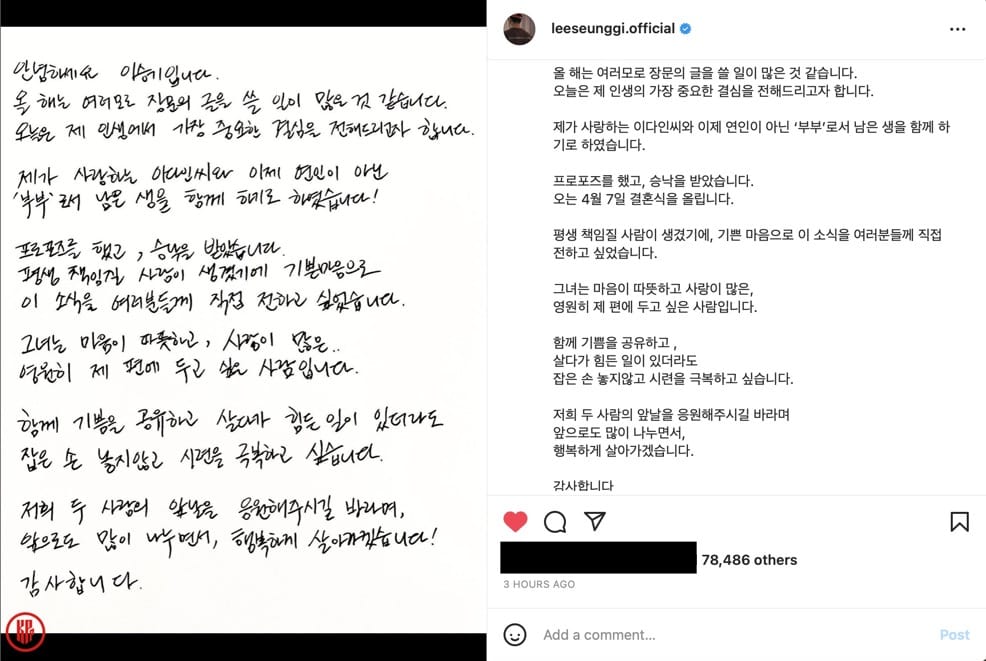 안녕하세요 이승기입니다.
올 해는 여러모로 장문의 글을 쓸 일이 많은 것 같습니다.
오늘은 제 인생에서 가장 중요한 결심을 전해드리고자 합니다.
제가 사랑하는 이다인씨와 이제 연인이 아닌
'부부'로서 남은 생을 함께 하기로 하였습니다!
프로포즈를 했고, 승낙을 받았습니다.
평생 책임질 사람이 생겼기에 기쁜마음으로
이 소식을 여러분들께 직접 전하고 싶었습니다.
그녀는 마음이 따뜻하고, 사랑이 많은..
영원히 제 편에 두고 싶은 사람입니다.
함께 기쁨을 공유하고 살다가 힘든 일이 있더라도
잡은 손 놓지않고 시련을 극복하고 싶습니다.
저희 두 사람의 앞날을 응원해주시길 바라며,
앞으로도 많이 나누면서, 행복하게 살아가겠습니다!
감사합니다.
leeseunggi.official
올 해는 여러모로 장문의 글을 쓸 일이 많은 것 같습니다.
오늘은 제 인생의 가장 중요한 결심을 전해드리고자 합니다.
제가 사랑하는 이다인씨와 이제 연인이 아닌 ‘부부’로서 남은 생을 함께 하
기로 하였습니다.
프로포즈를 했고, 승낙을 받았습니다.
오는 4월 7일 결혼식을 올립니다.
평생 책임질 사람이 생겼기에, 기쁜 마음으로 이 소식을 여러분들께 직접
전하고 싶었습니다.
그녀는 마음이 따뜻하고 사랑이 많은,
영원히 제 편에 두고 싶은 사람입니다.
함께 기쁨을 공유하고 ,
살다가 힘든 일이 있더라도
잡은 손 놓지않고 시련을 극복하고 싶습니다.
저희 두 사람의 앞날을 응원해주시길 바라며
앞으로도 많이 나누면서,
행복하게 살아가겠습니다.
감사합니다
78,486 others
3 HOURS AGO
Add a comment...
Post